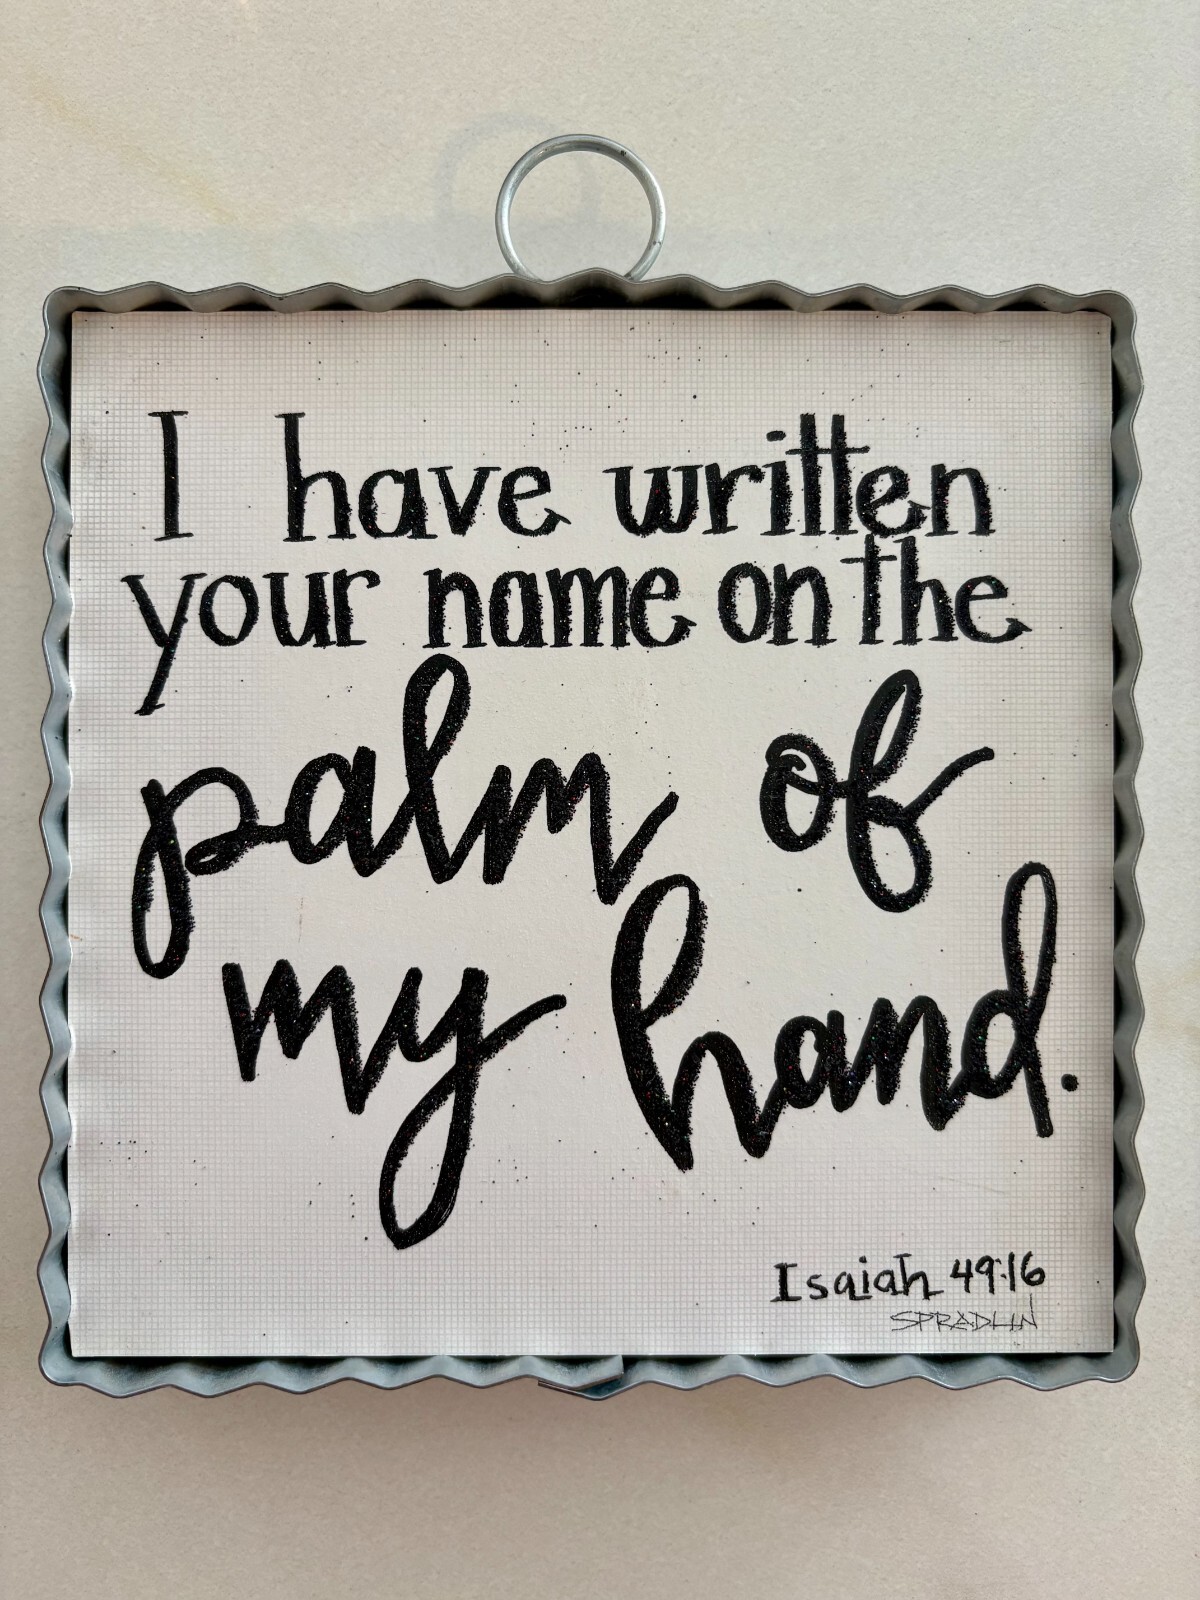 I have written
your name on the
palm of
my hand.
Isaiah 49:16
SPRADLIN